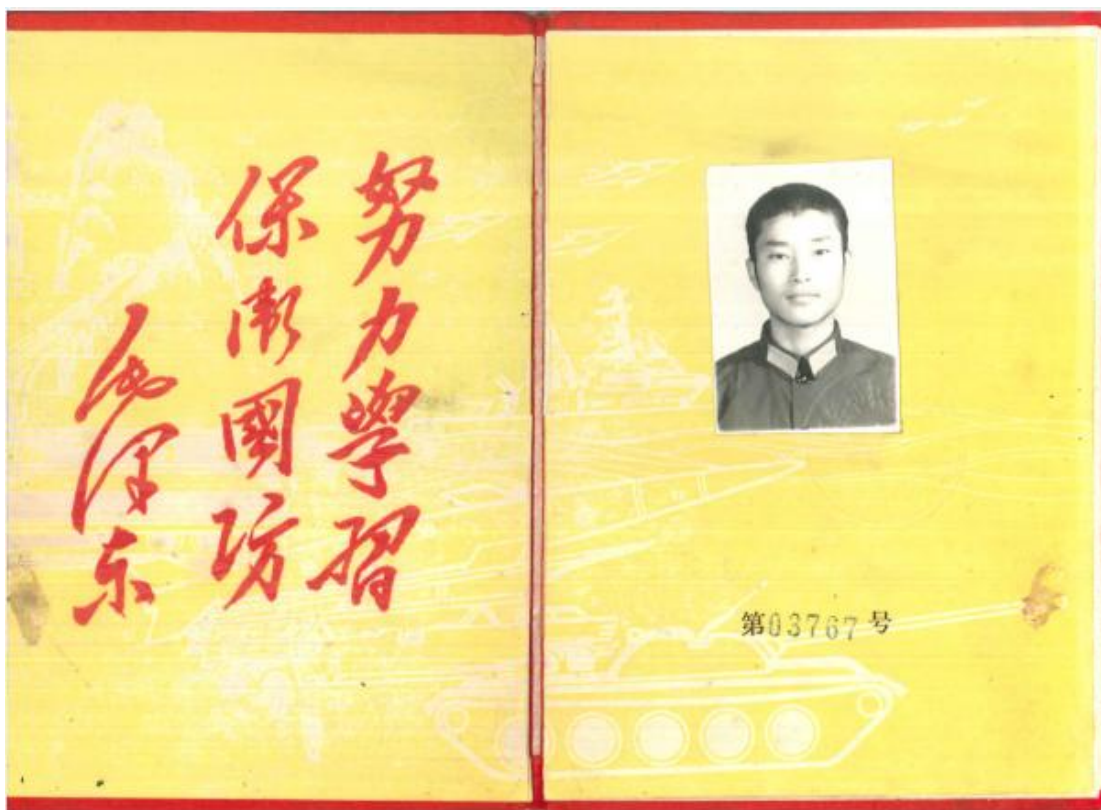 努力學習
保衛國防
毛泽东
第03767号